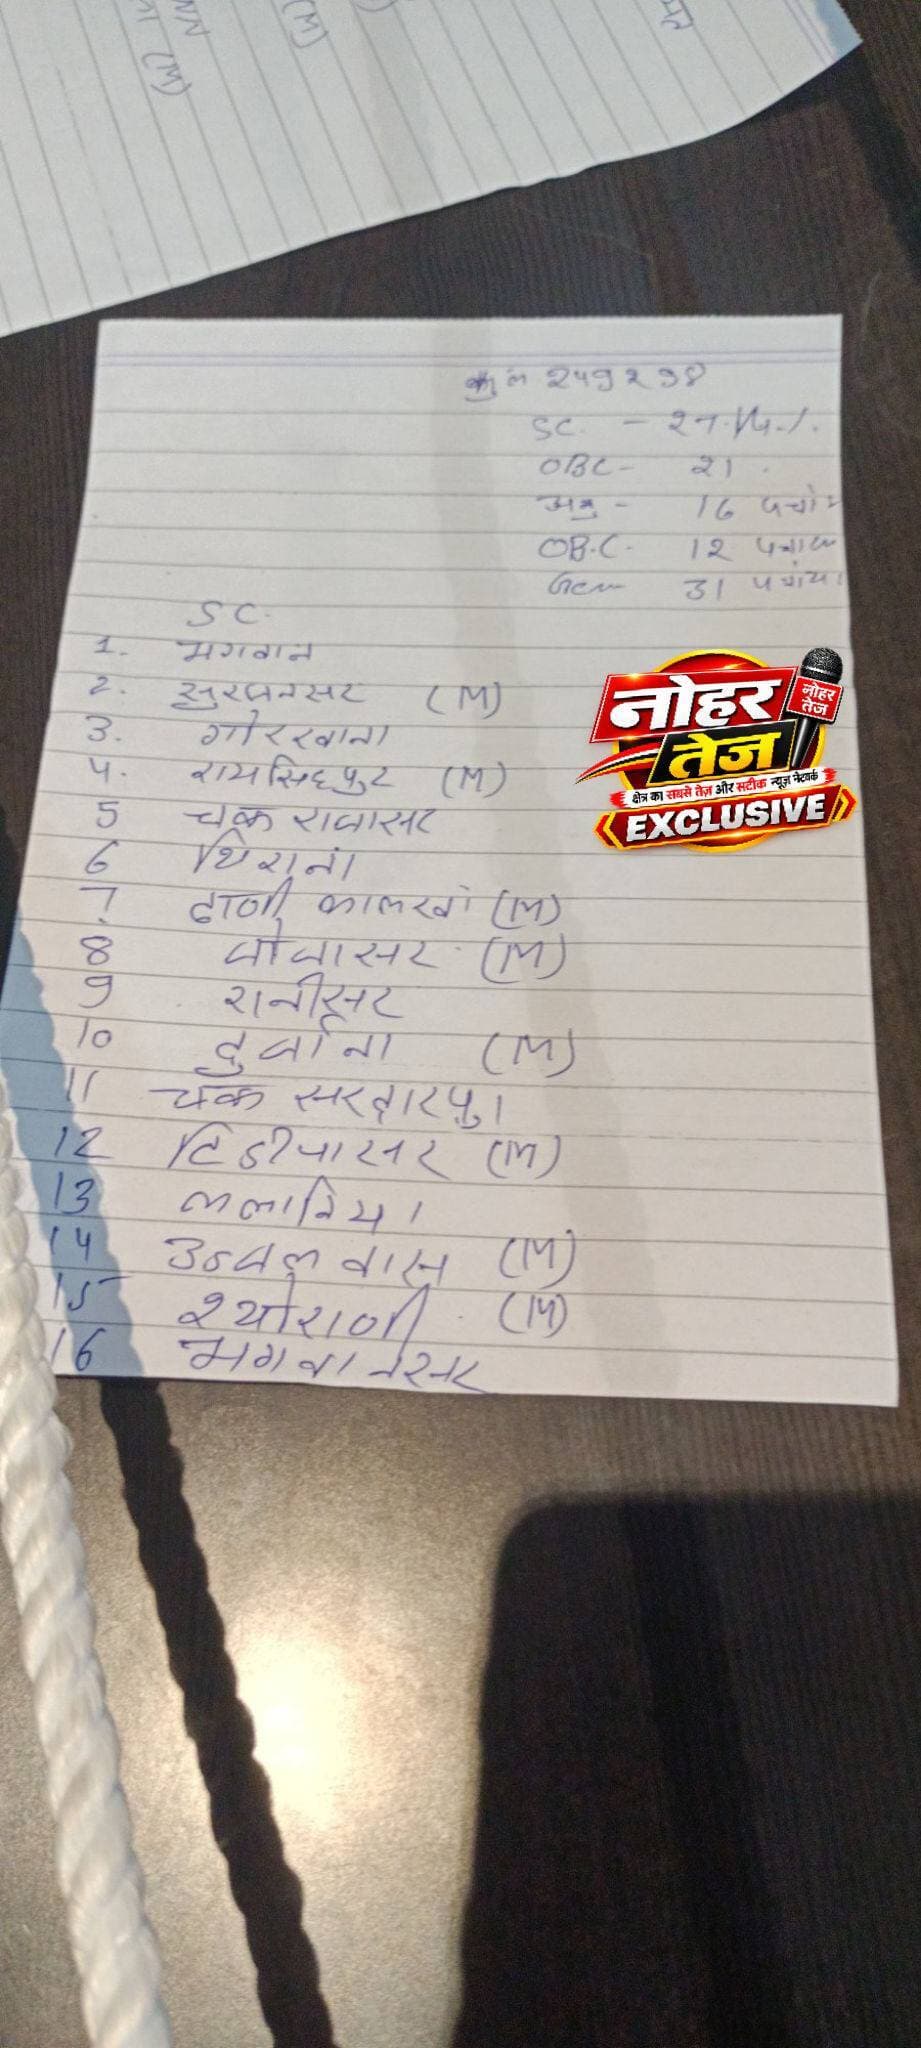 (M)
(M)
कुल 249298
SC. -
OBC- 21
अनु - 16
OB.C. 12
Gen 31
SC.
1. भगवान
2. सुरजनसर (M)
3. गोरखाना
4. रामसिंहपुर (M)
5 चक रावासर
6 थिराना
7 ढाणी कालखां (M)
8 जोजासर (M)
9 रानीसर
10 दुर्जाना (M)
11 चक सरदारपुरा
12 टिडीयासर (M)
13 ललानिया
14 उज्जलवास (M)
15 श्योराणी (M)
16 भगवानसर
नोहर
तेज
नोहर
तेज
क्षेत्र का सबसे तेज़ और सटीक न्यूज़ नेटवर्क
EXCLUSIVE